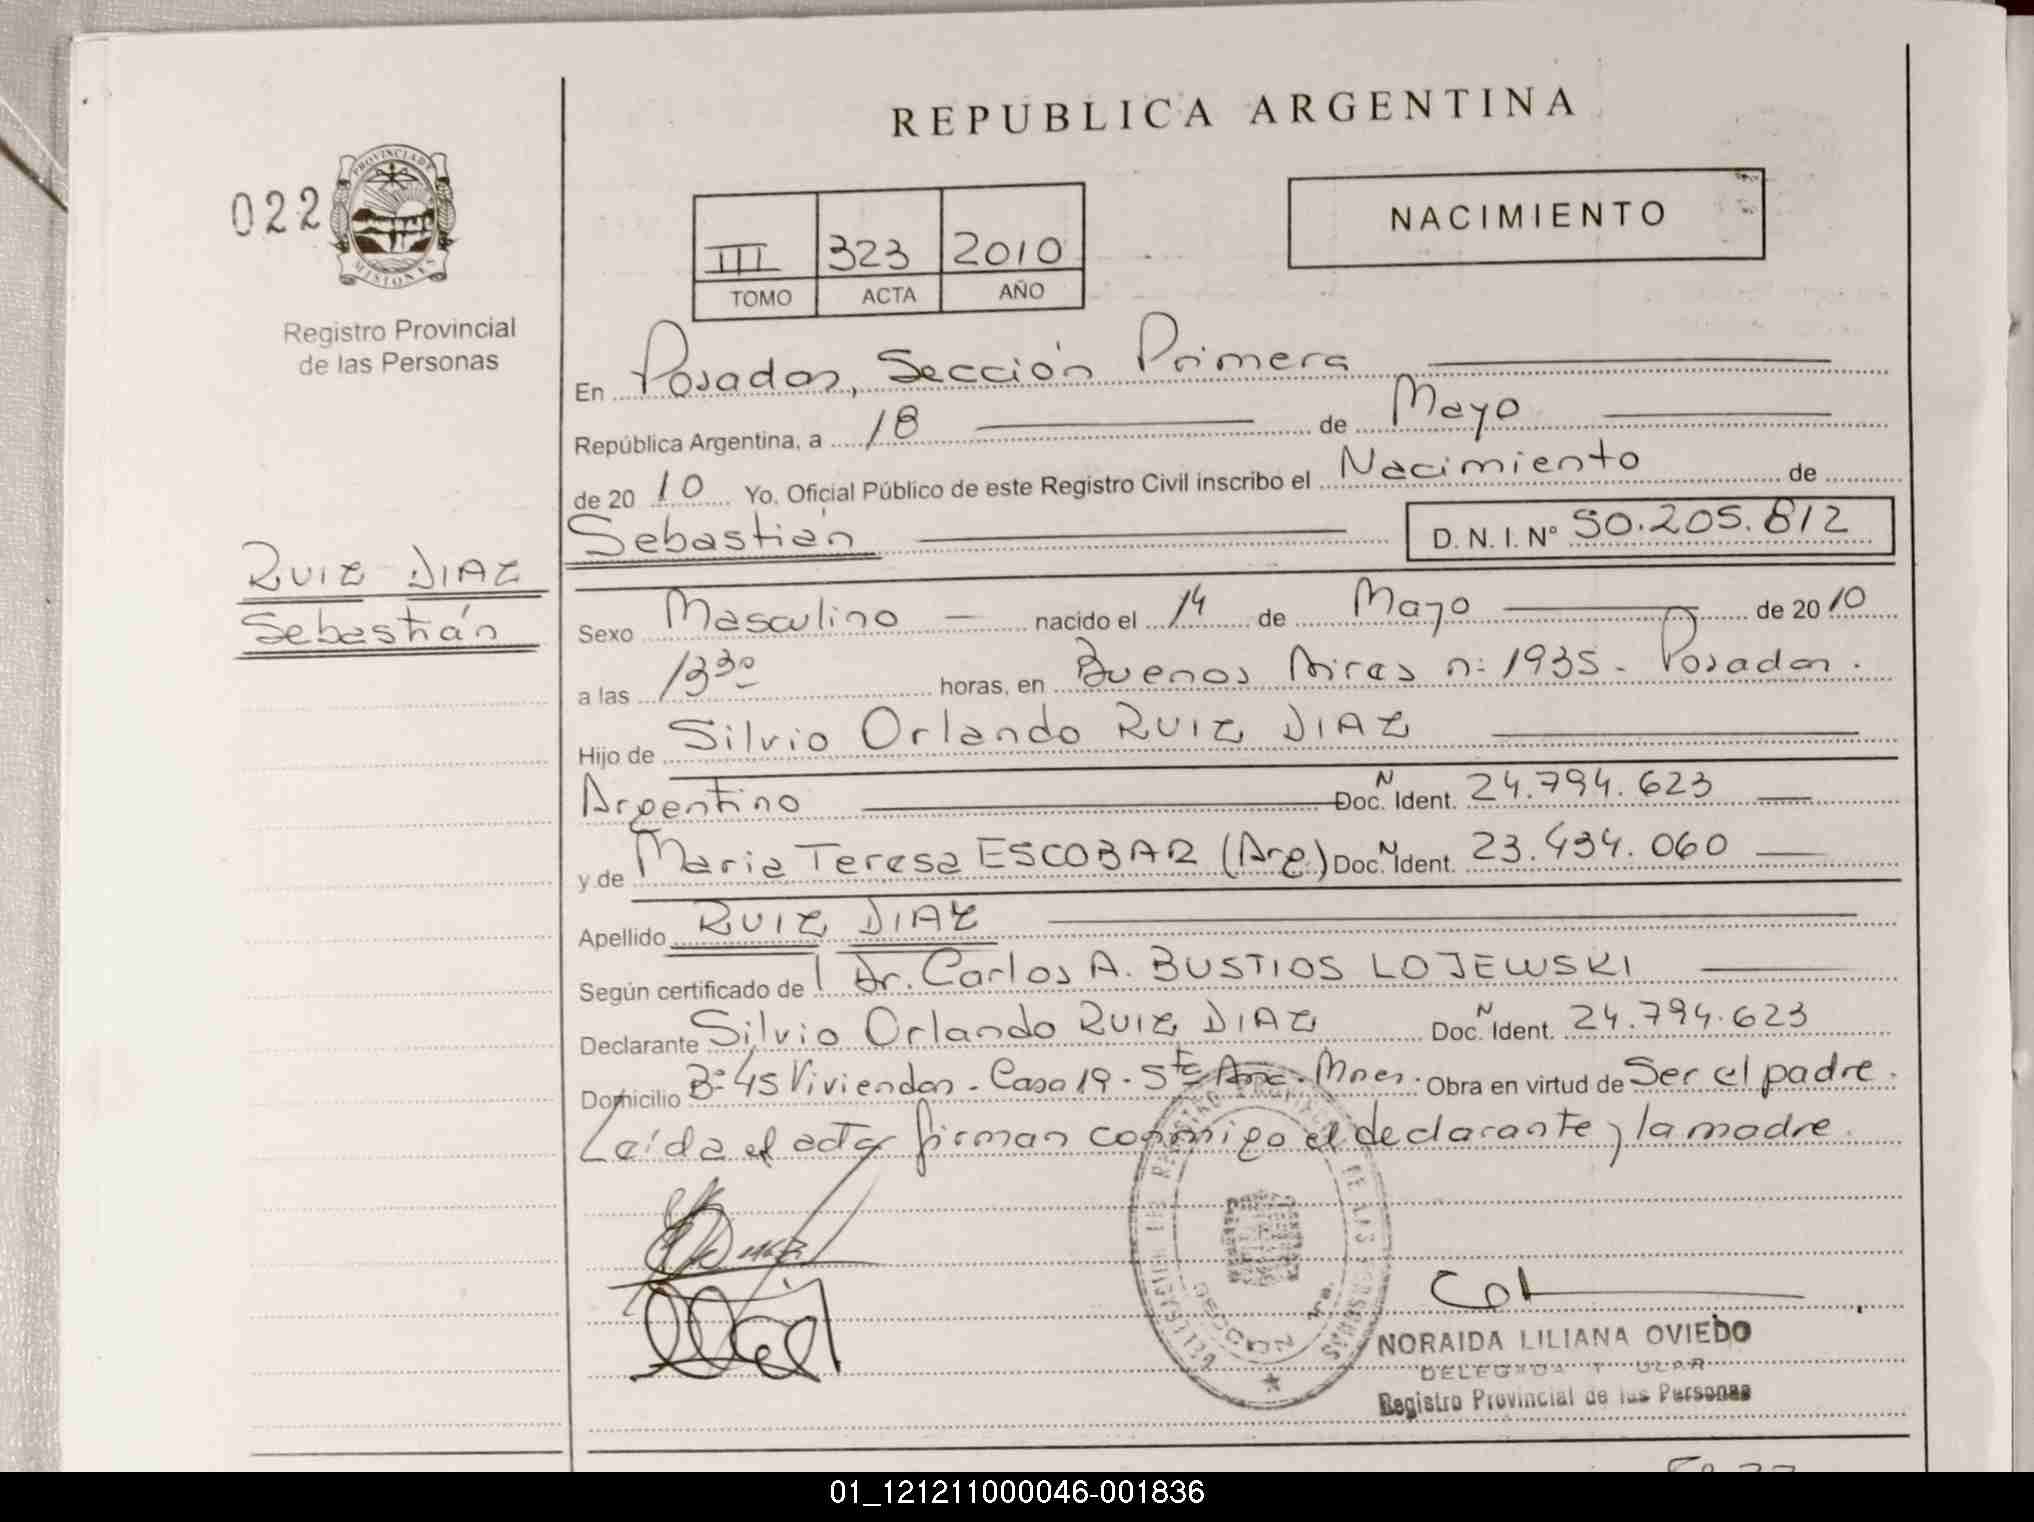 REPUBLICA ARGENTINA
022
PROVINCIA DE
MISIONES
Registro Provincial
de las Personas
III 323 2010
TOMO ACTA AÑO
NACIMIENTO
En Posadas, Sección Primera
República Argentina, a 18 de Mayo
de 20 10 Yo, Oficial Público de este Registro Civil inscribo el Nacimiento de
Sebastián D. N. I. Nº 50.205.812
RUIZ DIAZ
Sebastián
Sexo Masculino nacido el 14 de Mayo de 20 10
a las 13 30 horas, en Buenos Aires nº 1935 - Posadas.
Hijo de Silvio Orlando RUIZ DIAZ
Argentino Doc. N Ident. 24.794.623
y de Maria Teresa ESCOBAR (Arg) Doc. N Ident. 23.434.060
Apellido RUIZ DIAZ
Según certificado de Dr. Carlos A. BUSTIOS LOJEWSKI
Declarante Silvio Orlando RUIZ DIAZ Doc. N Ident. 24.794.623
Domicilio Bº 45 Viviendas - Casa 19 - Sta Ana - Mnes. Obra en virtud de Ser el padre.
Leída el acta firman conmigo el declarante y la madre.
SECCION 1ra.
NORAIDA LILIANA OVIEDO
DELEGADA T ULAR
Registro Provincial de las Personas
01_121211000046-001836